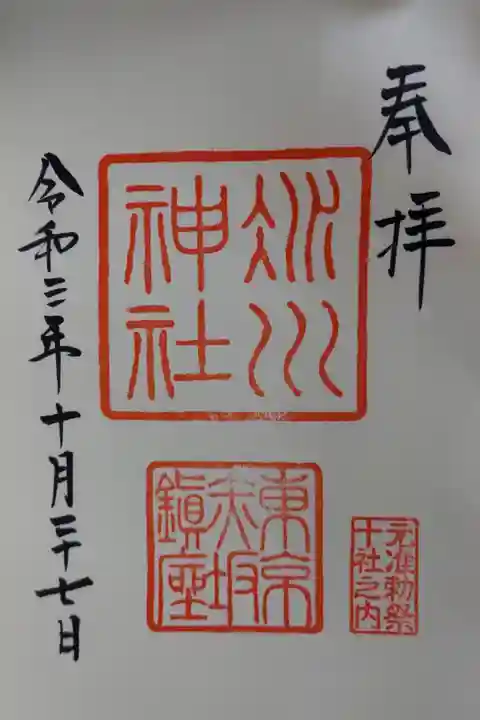 奉拝
氷川
神社
東京
赤坂
鎮座
元准勅祭
十社之内
令和三年十月二十七日